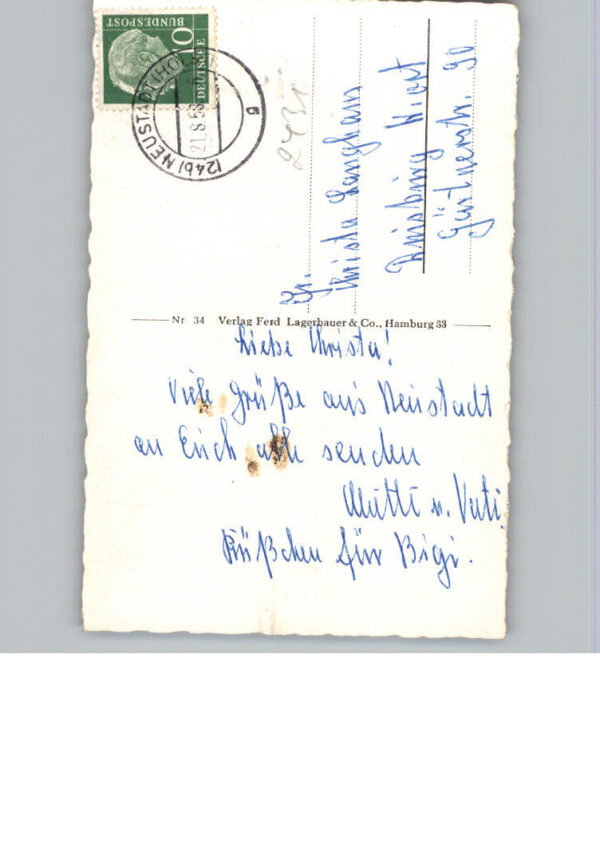 DEUTSCHE
BUNDESPOST
10
(24b) NEUSTADT (HOL
21.8.58
6
2431
Fr.
Christa Langhans
Duisburg
Gärtnerstr. 90
Nr 34 Verlag Ferd Lagerbauer & Co., Hamburg 33
Liebe Christa!
Viele Grüße aus Neustadt
an Euch alle senden
Mutti u. Vati
Küßchen für Bigi.